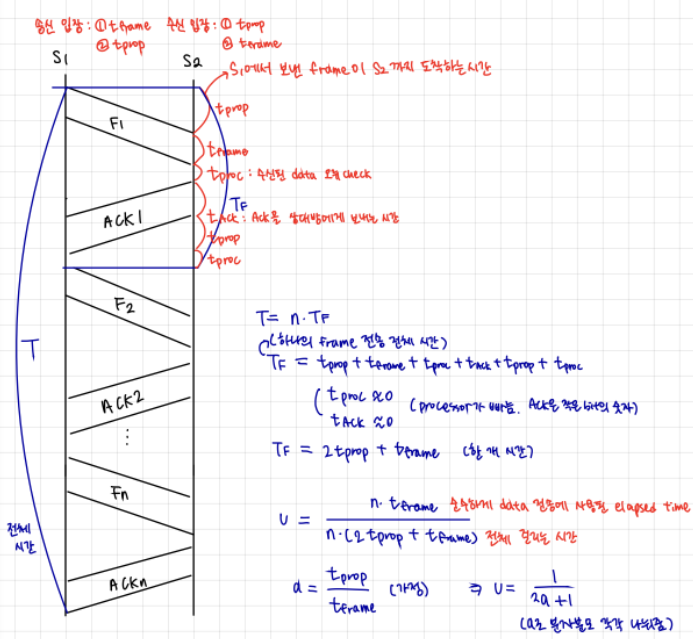 송신 입장 : ① tframe 수신 입장 : ① tprop
② tprop ② tframe
S1 S2
S1에서 보낸 frame이 S2까지 도착하는 시간
tprop
F1
tframe
tproc : 수신된 data 오류 check
TF
ACK1
tAck : Ack를 상대방에게 보내는 시간
tprop
tproc
F2
T = n·TF
T
(하나의 frame 전송 전체 시간)
TF = tprop + tframe + tproc + tAck + tprop + tproc
ACK2
tproc ≈0
(processor가 빠름. Ack은 작은 bit의 숫자)
tAck ≈0
⋮
TF = 2tprop + tframe (한 개 시간)
Fn
n·tframe 순수하게 data 전송에 사용된 elapsed time
U =
n·(2tprop + tframe) 전체 걸리는 시간
전체
시간
a = tprop / tframe (가정) ⇒ U = 1 / 2a+1
ACKn
(a로 분자분모 각각 나눠줌)